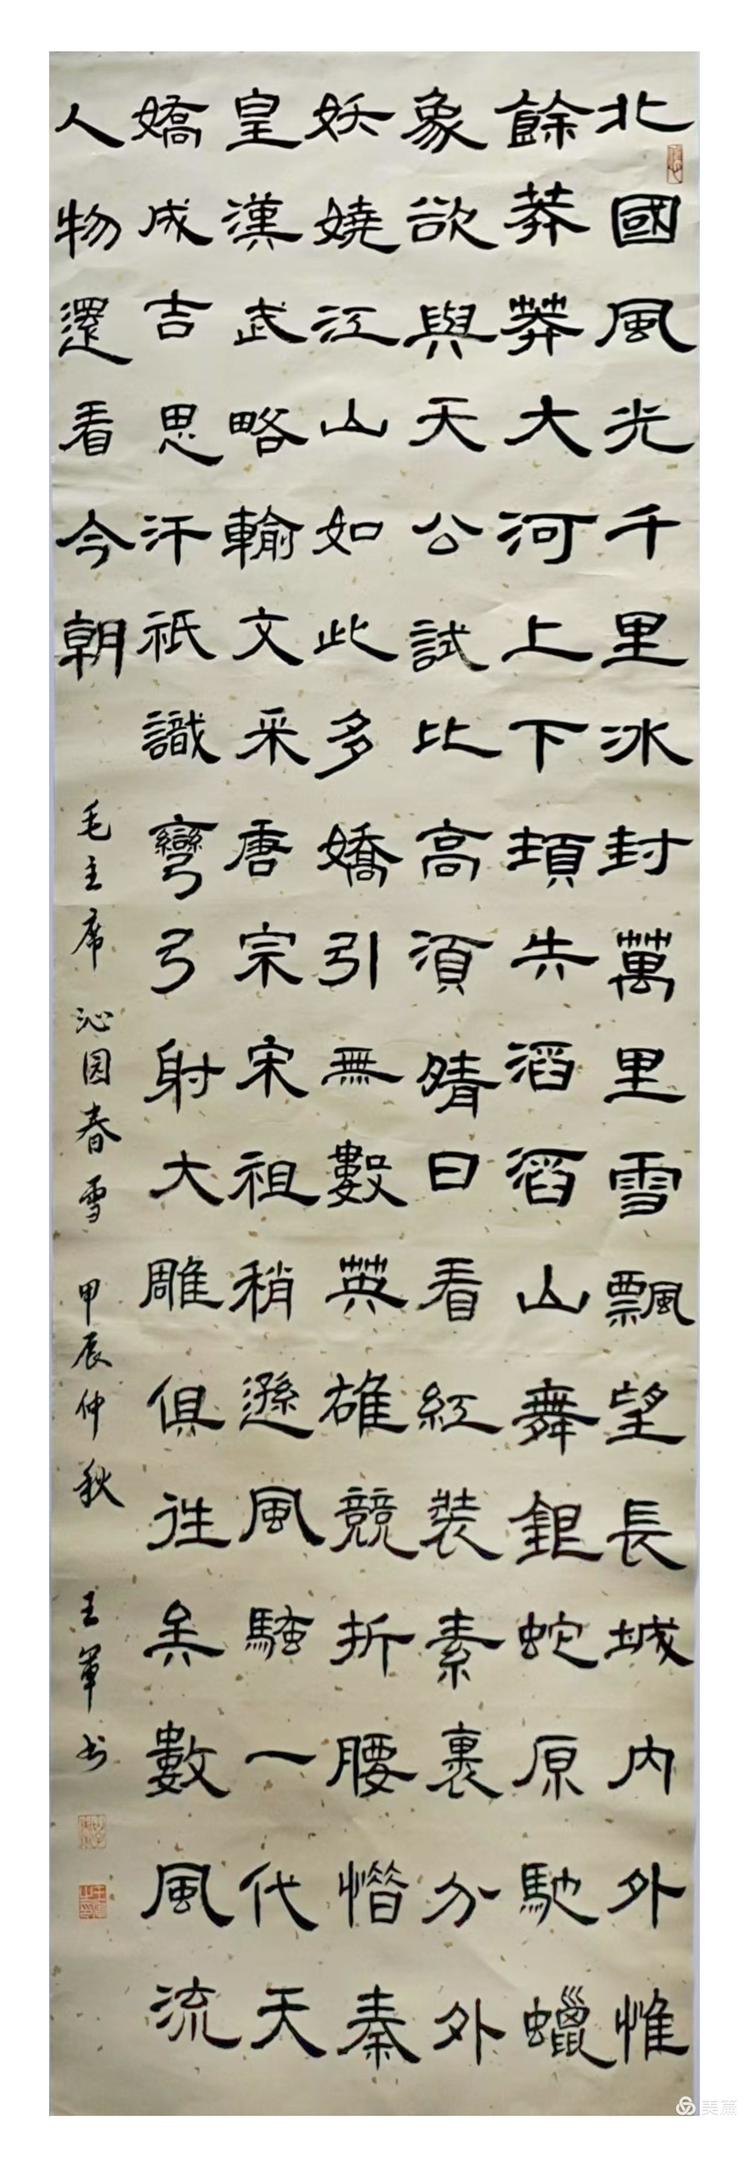 北國風光千里冰封萬里雪飄望長城內外惟
餘莽莽大河上下頓失滔滔山舞銀蛇原馳蠟
象欲與天公試比高須晴日看紅裝素裹分外
妖嬈江山如此多嬌引無數英雄競折腰惜秦
皇漢武略輸文采唐宗宋祖稍遜風騷一代天
嬌成吉思汗祇識彎弓射大雕俱往矣數風流
人物還看今朝
毛主席沁园春雪 甲辰仲秋 王軍书
美篇